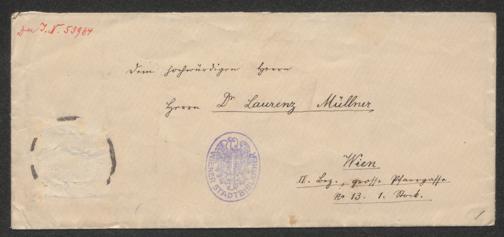 Zu I. N. 53984
Dem hochwürdigen Herrn
Herrn Dr Laurenz Müllner
WIENER STADTBIBLIOTHEK
Wien
II. Bez., grosse Pfarrgasse
No 13. 1. Stock.
1